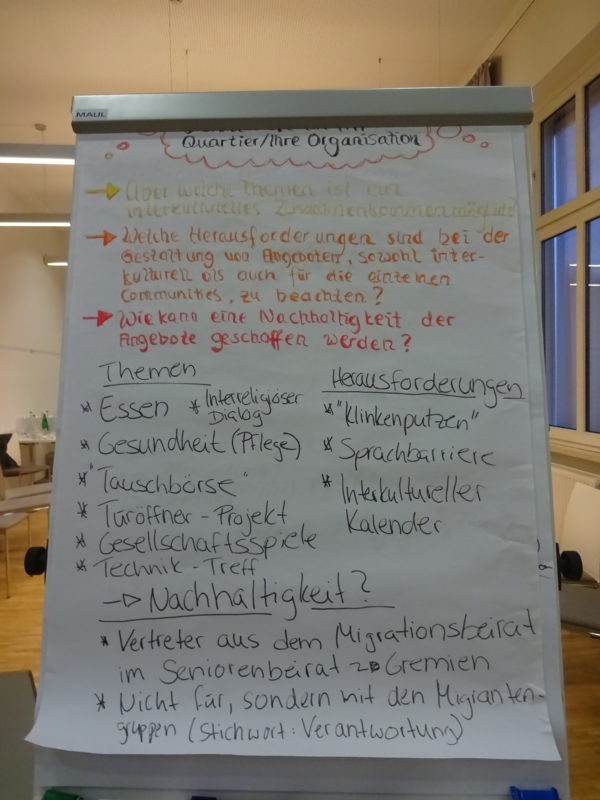 MAUL
Quartier/Ihre Organisation
Über welche Themen ist ein
interkulturelles Zusammenkommen möglich?
Welche Herausforderungen sind bei der
Gestaltung von Angeboten, sowohl inter-
kulturell als auch für die einzelnen
Communities, zu beachten?
Wie kann eine Nachhaltigkeit der
Angebote geschaffen werden?
Themen
* Essen
* Interreligiöser
Dialog
* Gesundheit (Pflege)
* "Tauschbörse"
* Türöffner - Projekt
* Gesellschaftsspiele
* Technik - Treff
Herausforderungen
* "Klinkenputzen"
* Sprachbarriere
* Interkultureller
Kalender
→ Nachhaltigkeit?
* Vertreter aus dem Migrationsbeirat
im Seniorenbeirat → Gremien
* Nicht für, sondern mit den Migranten-
gruppen (Stichwort: Verantwortung)